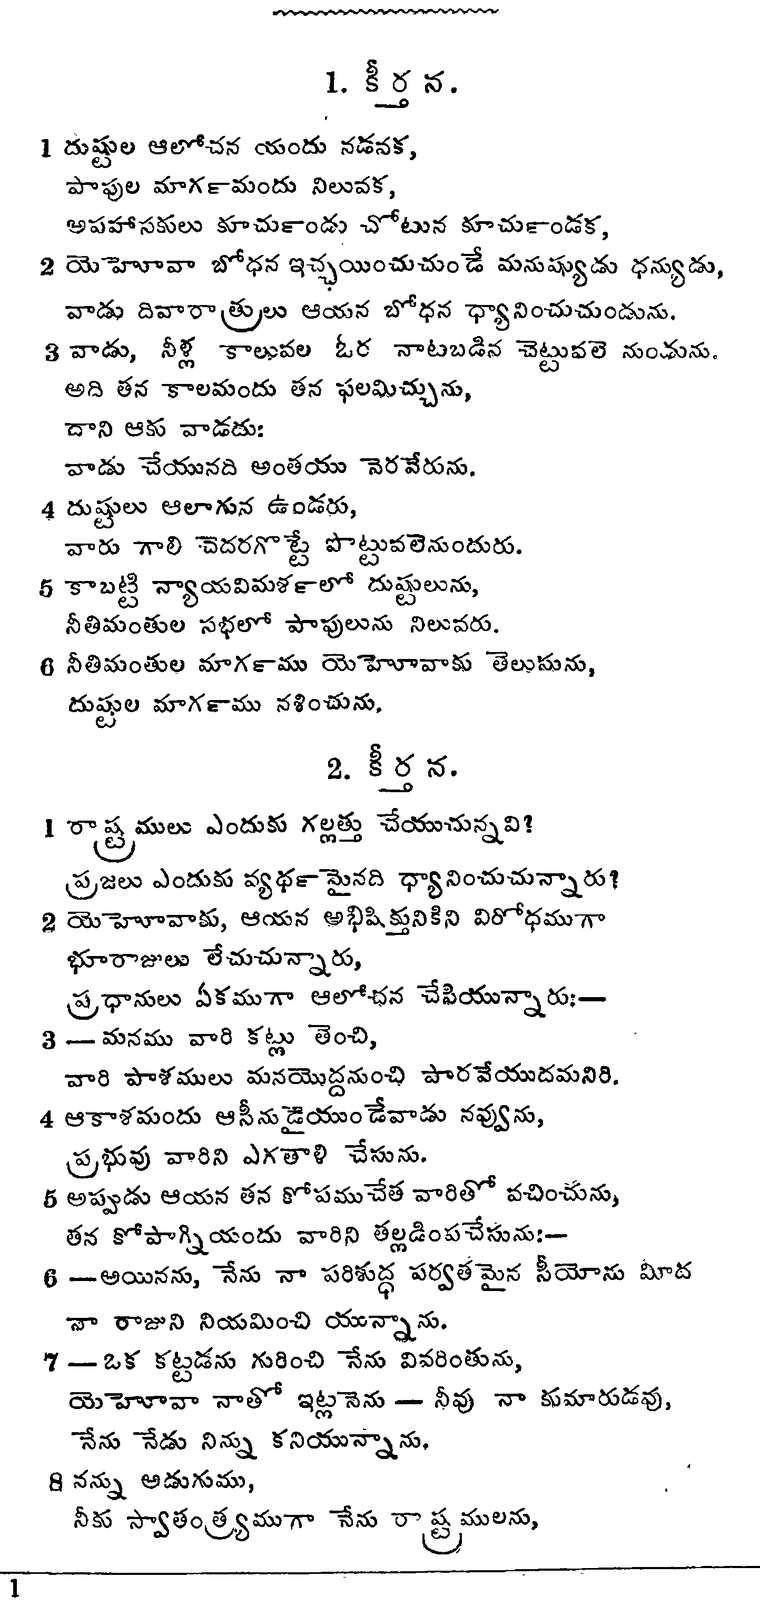 1. కీర్తన.
1 దుష్టుల ఆలోచన యందు నడవక,
పాపుల మాగ౯మందు నిలువక,
అపహాసకులు కూచు౯ండు చోటున కూచు౯ండక,
2 యెహెూవా బోధన ఇచ్ఛయించుచుండే మనుష్యుడు ధన్యుడు,
వాడు దివారాత్రులు ఆయన బోధన ధ్యానించుచుండును.
3 వాడు, నీళ్ల కాలువల ఓర నాటబడిన చెట్టువలె నుండును.
అది తన కాలమందు తన ఫలమిచ్చును,
దాని ఆకు వాడదు:
వాడు చేయునది అంతయు నెరవేరును.
4 దుష్టులు ఆలాగున ఉండరు,
వారు గాలి చెదరగొట్టే పొట్టువలెనుందురు.
5 కాబట్టి న్యాయవిమశ౯లో దుష్టులును,
నీతిమంతుల సభలో పాపులును నిలువరు.
6 నీతిమంతుల మాగ౯ము యెహెూవాకు తెలుసును,
దుష్టుల మాగ౯ము నశించును.
2. కీర్తన.
1 రాష్ట్రములు ఎందుకు గల్లత్తు చేయుచున్నవి?
ప్రజలు ఎందుకు వ్యథ౯మైనది ధ్యానించుచున్నారు?
2 యెహెూవాకు, ఆయన అభిషిక్తునికిని విరోధముగా
భూరాజులు లేచుచున్నారు,
ప్రధానులు ఏకముగా ఆలోచన చేసియున్నారు:—
3 — మనము వారి కట్లు తెంచి,
వారి పాశములు మనయొద్దనుంచి పారవేయుదమనిరి.
4 ఆకాశమందు ఆసీనుడైయుండేవాడు నవ్వును,
ప్రభువు వారిని ఎగతాళి చేసును.
5 అప్పుడు ఆయన తన కోపముచేత వారితో వచించును,
తన కోపాగ్నియందు వారిని తల్లడింపచేసును:—
6 — అయినను, నేను నా పరిశుద్ధ పర్వతమైన సీయోను మీద
నా రాజుని నియమించి యున్నాను.
7 — ఒక కట్టడను గురించి నేను వివరింతును,
యెహెూవా నాతో ఇట్లనెను — నీవు నా కుమారుడవు,
నేను నేడు నిన్ను కనియున్నాను.
8 నన్ను అడుగుము,
నీకు స్వాతంత్ర్యముగా నేను రాష్ట్రములను,
1